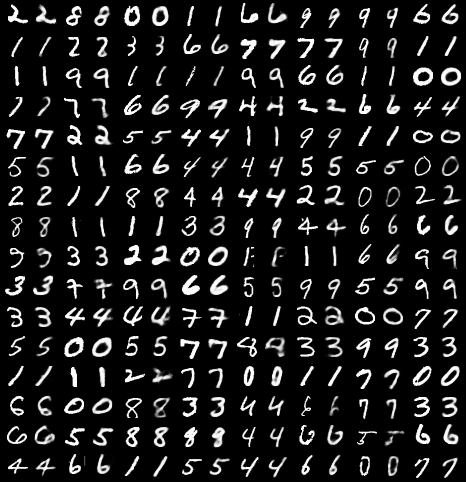 2 2 8 8 0 0 1 1 6 6 9 9 9 9 6 6
1 1 2 2 3 3 6 6 7 7 7 7 9 9 1 1
1 1 9 9 1 1 1 1 9 9 6 6 1 1 0 0
7 7 7 7 6 6 9 9 4 4 2 2 6 6 4 4
7 7 2 2 5 5 4 4 1 1 9 9 1 1 0 0
5 5 1 1 6 6 4 4 4 4 5 5 5 5 0 0
2 2 1 1 8 8 4 4 4 4 2 2 0 0 2 2
8 8 1 1 1 1 3 3 9 9 4 4 6 6 6 6
9 9 3 3 2 2 0 0 1 1 6 6 9 9
3 3 7 7 9 9 6 6 5 5 9 9 5 5 9 9
3 3 4 4 4 4 7 7 1 1 2 2 0 0 7 7
5 5 0 0 5 5 7 7 8 8 3 3 9 9 3 3
1 1 1 1 2 2 7 7 0 0 1 1 7 7 0 0
6 6 0 0 8 8 3 3 4 4 6 6 7 7 3 3
6 6 5 5 8 8 8 8 4 4 6 6 5 5 6 6
4 4 6 6 1 1 5 5 4 4 6 6 0 0 7 7